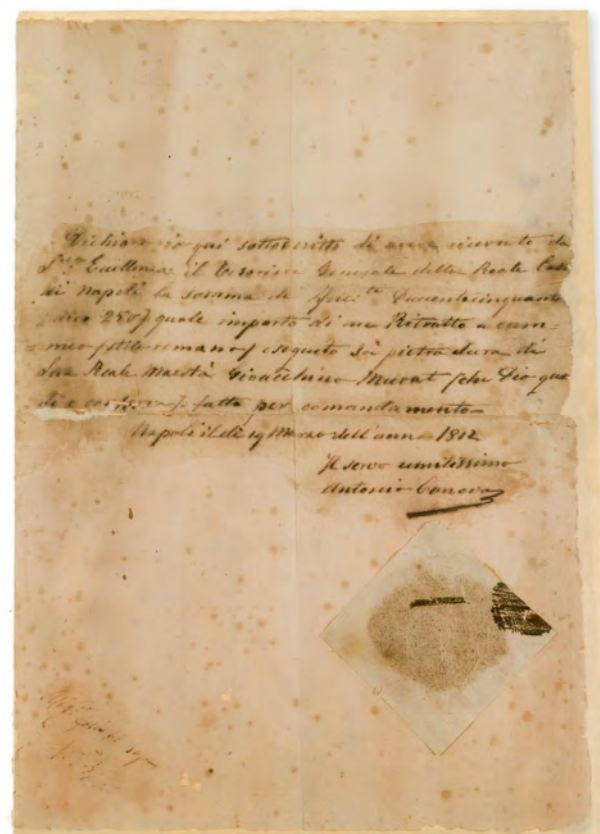 Dichiaro io qui sottoscritto di aver ricevuto da
S. Eccellenza il Tesoriere Generale della Reale Casa
di Napoli la somma di Duecentocinquanta
dico 250 quale importo di un Ritratto a cam=
=meo /stile romano/ eseguito su pietra dura di
Sua Reale Maestà Gioacchino Murat /che Dio guar
di e conservi/ fatto per comandamento
Napoli il dì 19 Marzo dell'anno 1812
Il servo umilissimo
Antonio Canova